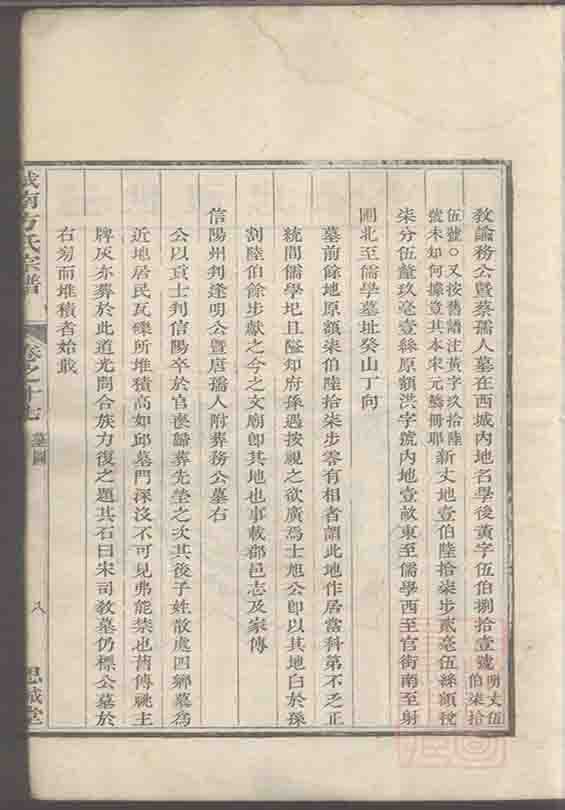 教諭務公曁蔡孺人墓在西城內地名學後黃字伍伯捌拾壹號明丈伍伯柒拾
伍號○又按舊譜注黃字玖拾陸號未知何據豈其本宋元舊冊耶新丈地壹伯陸拾柒步貳毫伍絲額稅
柒分伍釐玖毫壹絲原額洪字號內地壹畝東至儒學西至官街南至射
圃北至儒學墓址癸山丁向
墓前餘地原額柒伯陸拾柒步零有相者謂此地作居當科第不乏正
統間儒學圮且隘知府孫遇按視之欲廣焉士旭公卽以其地白於孫
割陸伯餘步獻之今之文廟卽其地也事載郡邑志及家傳
信陽州判逢明公曁唐孺人附葬務公墓右
公以貢士判信陽卒於官喪歸葬先塋之次其後子姓散處四鄉墓爲
近地居民瓦礫所堆積高如邱墓門深沒不可見弗能禁也莆傳祧主
牌灰亦葬於此道光間合族力復之題其石曰宋司教墓仍標公墓於
右芻而堆積者始戢
城南方氏宗譜 卷之十七 墓圖 八 思誠堂